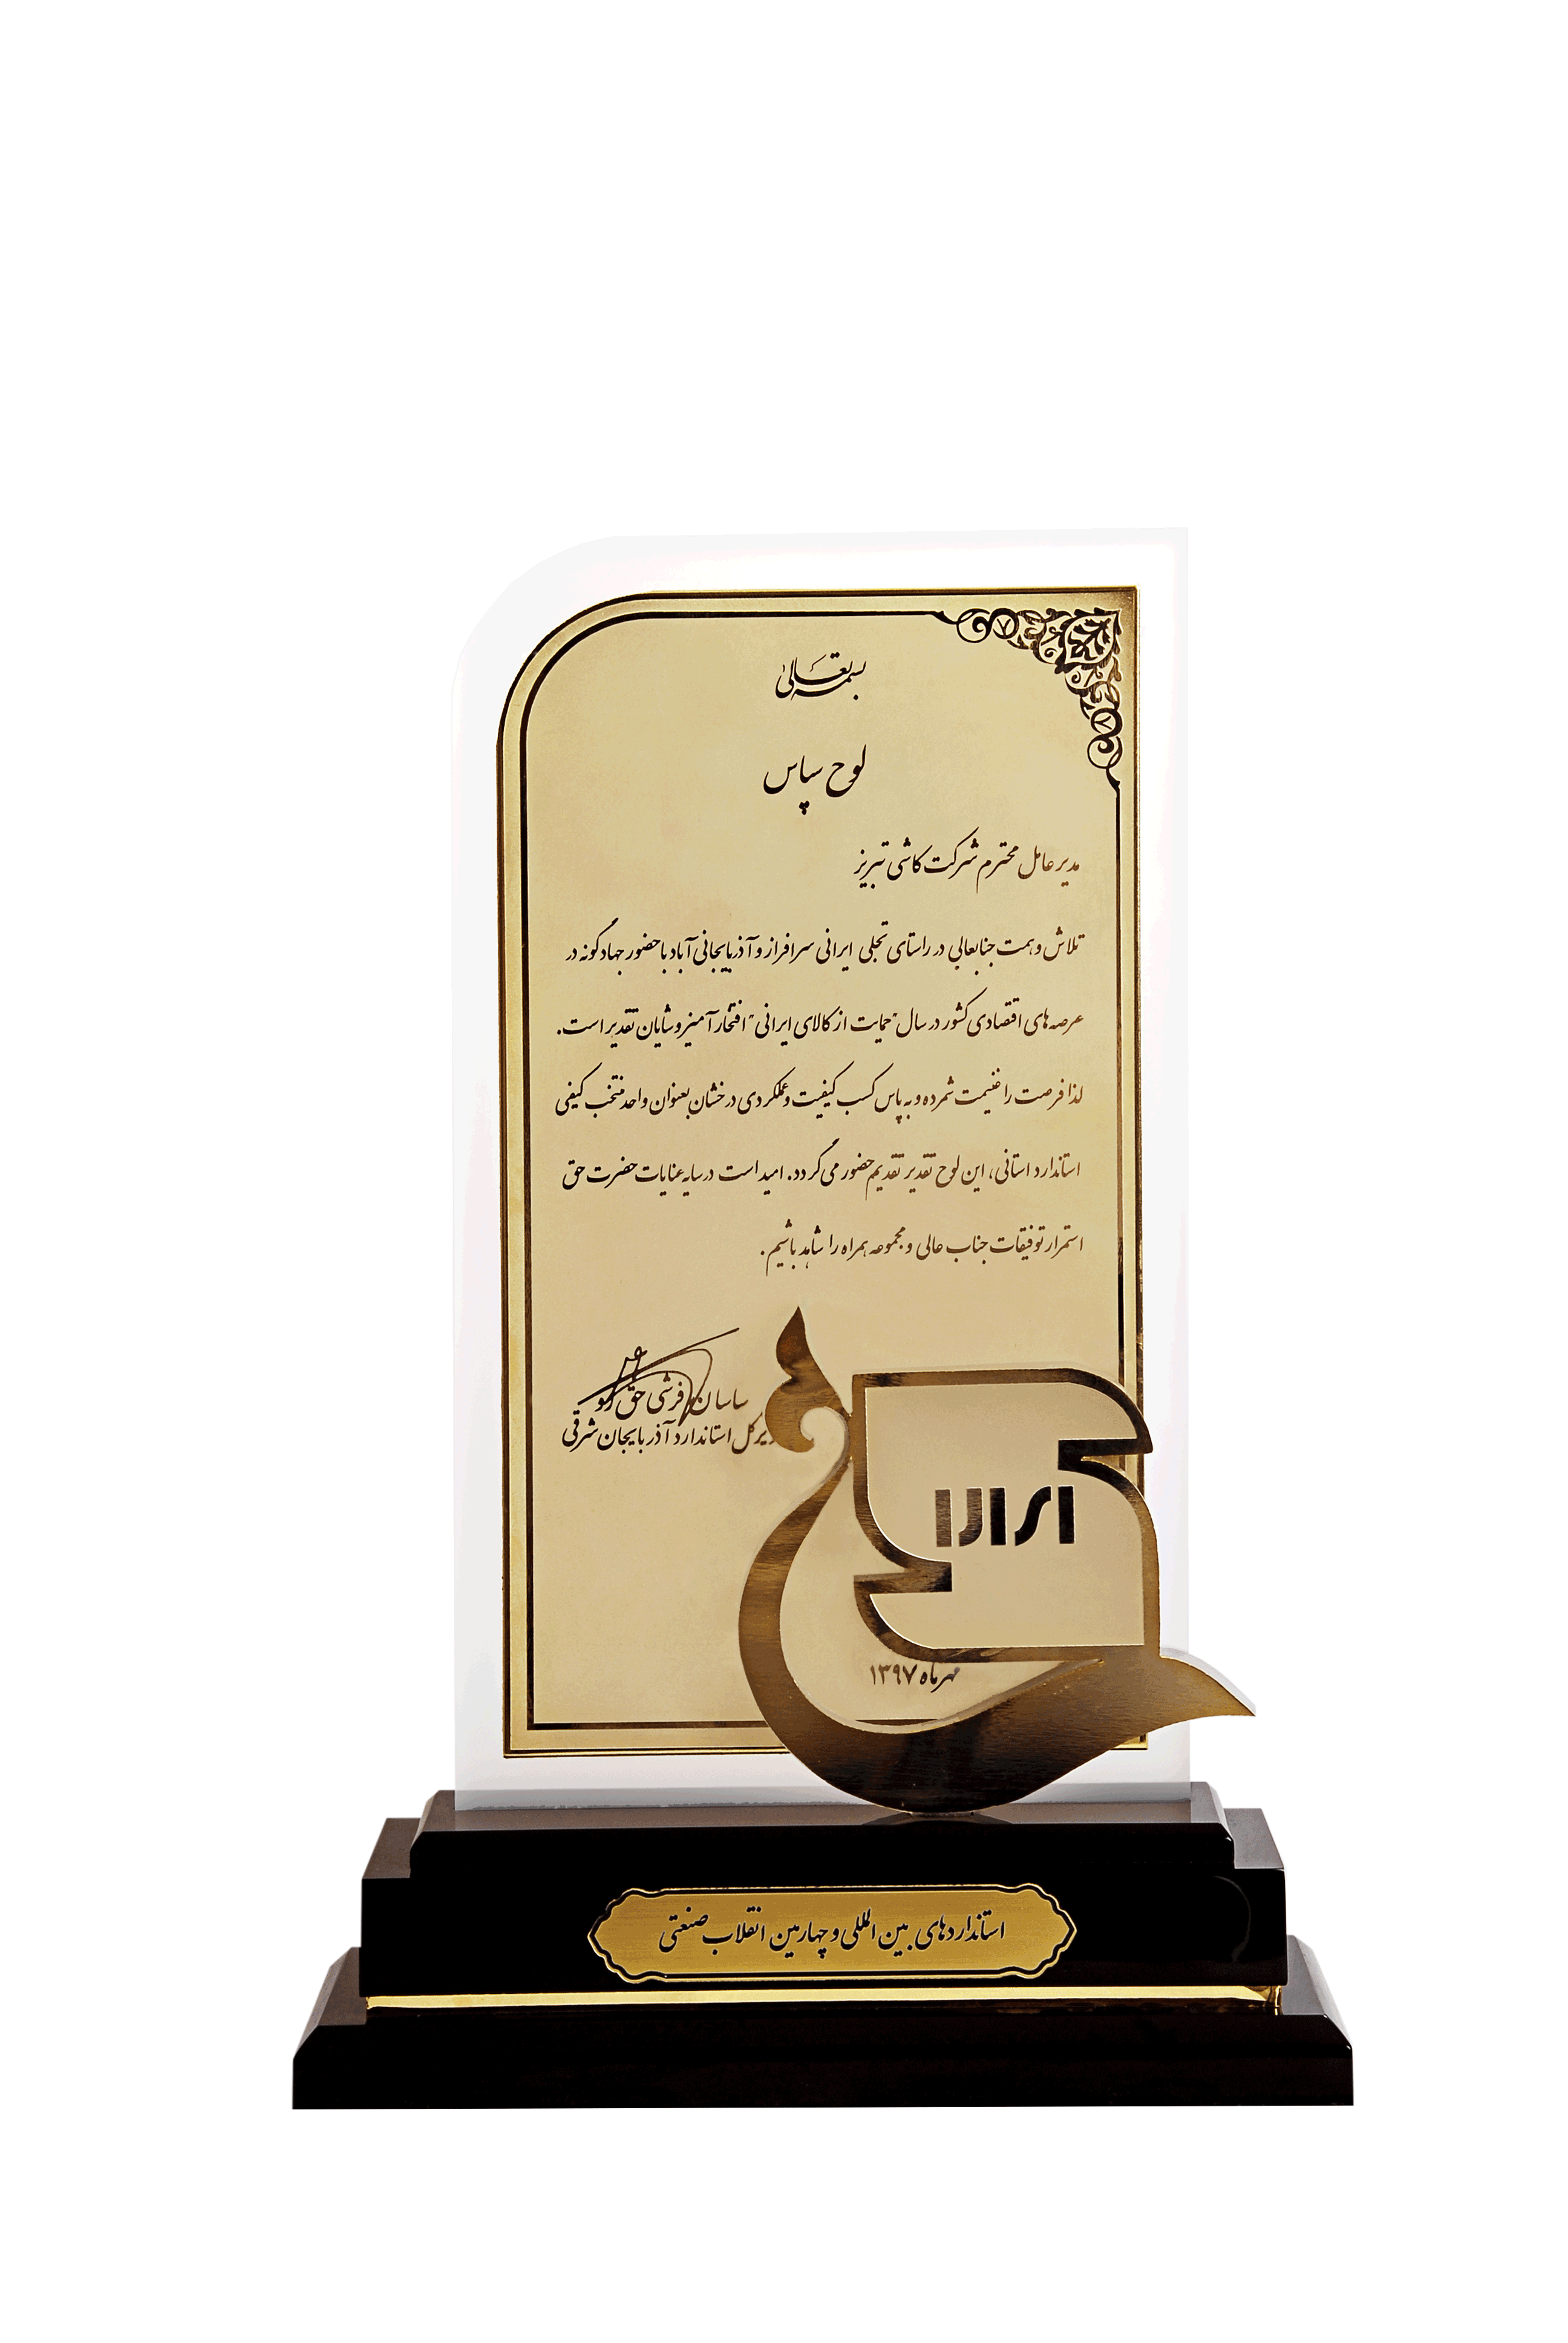 بسمه تعالی
لوح سپاس
مدیر عامل محترم شرکت کاشی تبریز
تلاش و همت جنابعالی در راستای تجلی ایرانی سرافراز و آذربایجانی آباد با حضور جهاد گونه در
عرصه های اقتصادی کشور در سال "حمایت از کالای ایرانی" افتخار آمیز و شایان تقدیر است.
لذا فرصت را غنیمت شمرده و به پاس کسب کیفیت و عملکردی درخشان بعنوان واحد منتخب کیفی
استاندارد استانی، این لوح تقدیر تقدیم حضور می گردد. امید است در سایه عنایات حضرت حق
استمرار توفیقات جناب عالی و مجموعه همراه را شاهد باشیم.
ساسان فرشی حق رو
یرکل استاندارد آذربایجان شرقی
مهرماه ۱۳۹۷
استانداردهای بین المللی و چهارمین انقلاب صنعتی